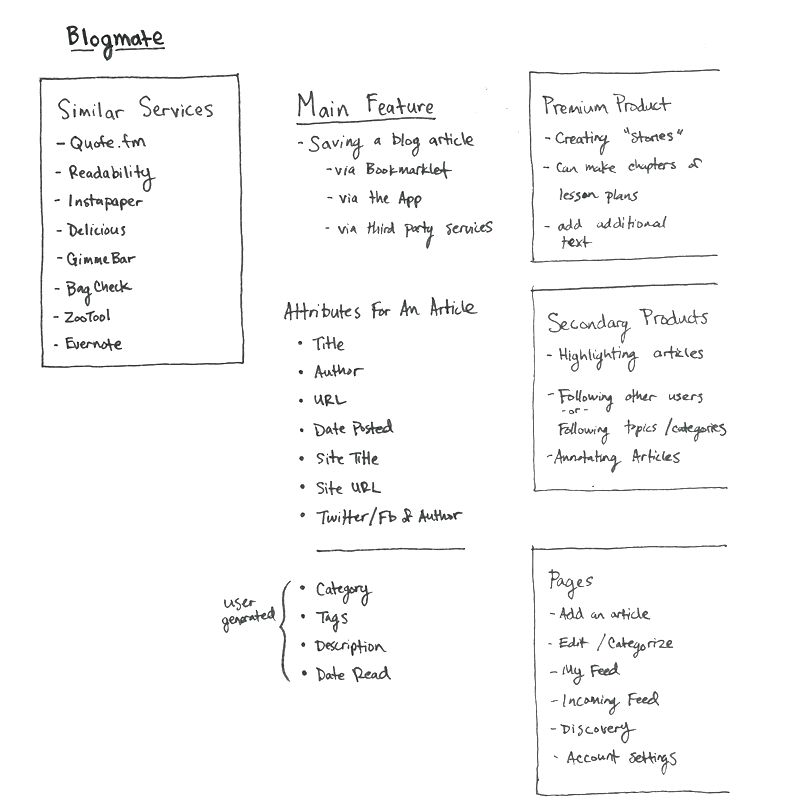 Blogmate
Similar Services
- Quote.fm
- Readability
- Instapaper
- Delicious
- GimmeBar
- BagCheck
- ZooTool
- Evernote
Main Feature
- Saving a blog article
- via Bookmarklet
- via the App
- via third party services
Attributes For An Article
• Title
• Author
• URL
• Date Posted
• Site Title
• Site URL
• Twitter/Fb of Author
user
generated
• Category
• Tags
• Description
• Date Read
Premium Product
- Creating "Stories"
- Can make chapters or
lesson plans
- add additional
text
Secondary Products
- Highlighting articles
- Following other users
- or -
Following topics /categories
- Annotating Articles
Pages
- Add an article
- Edit /Categorize
- My Feed
- Incoming Feed
- Discovery
- Account settings